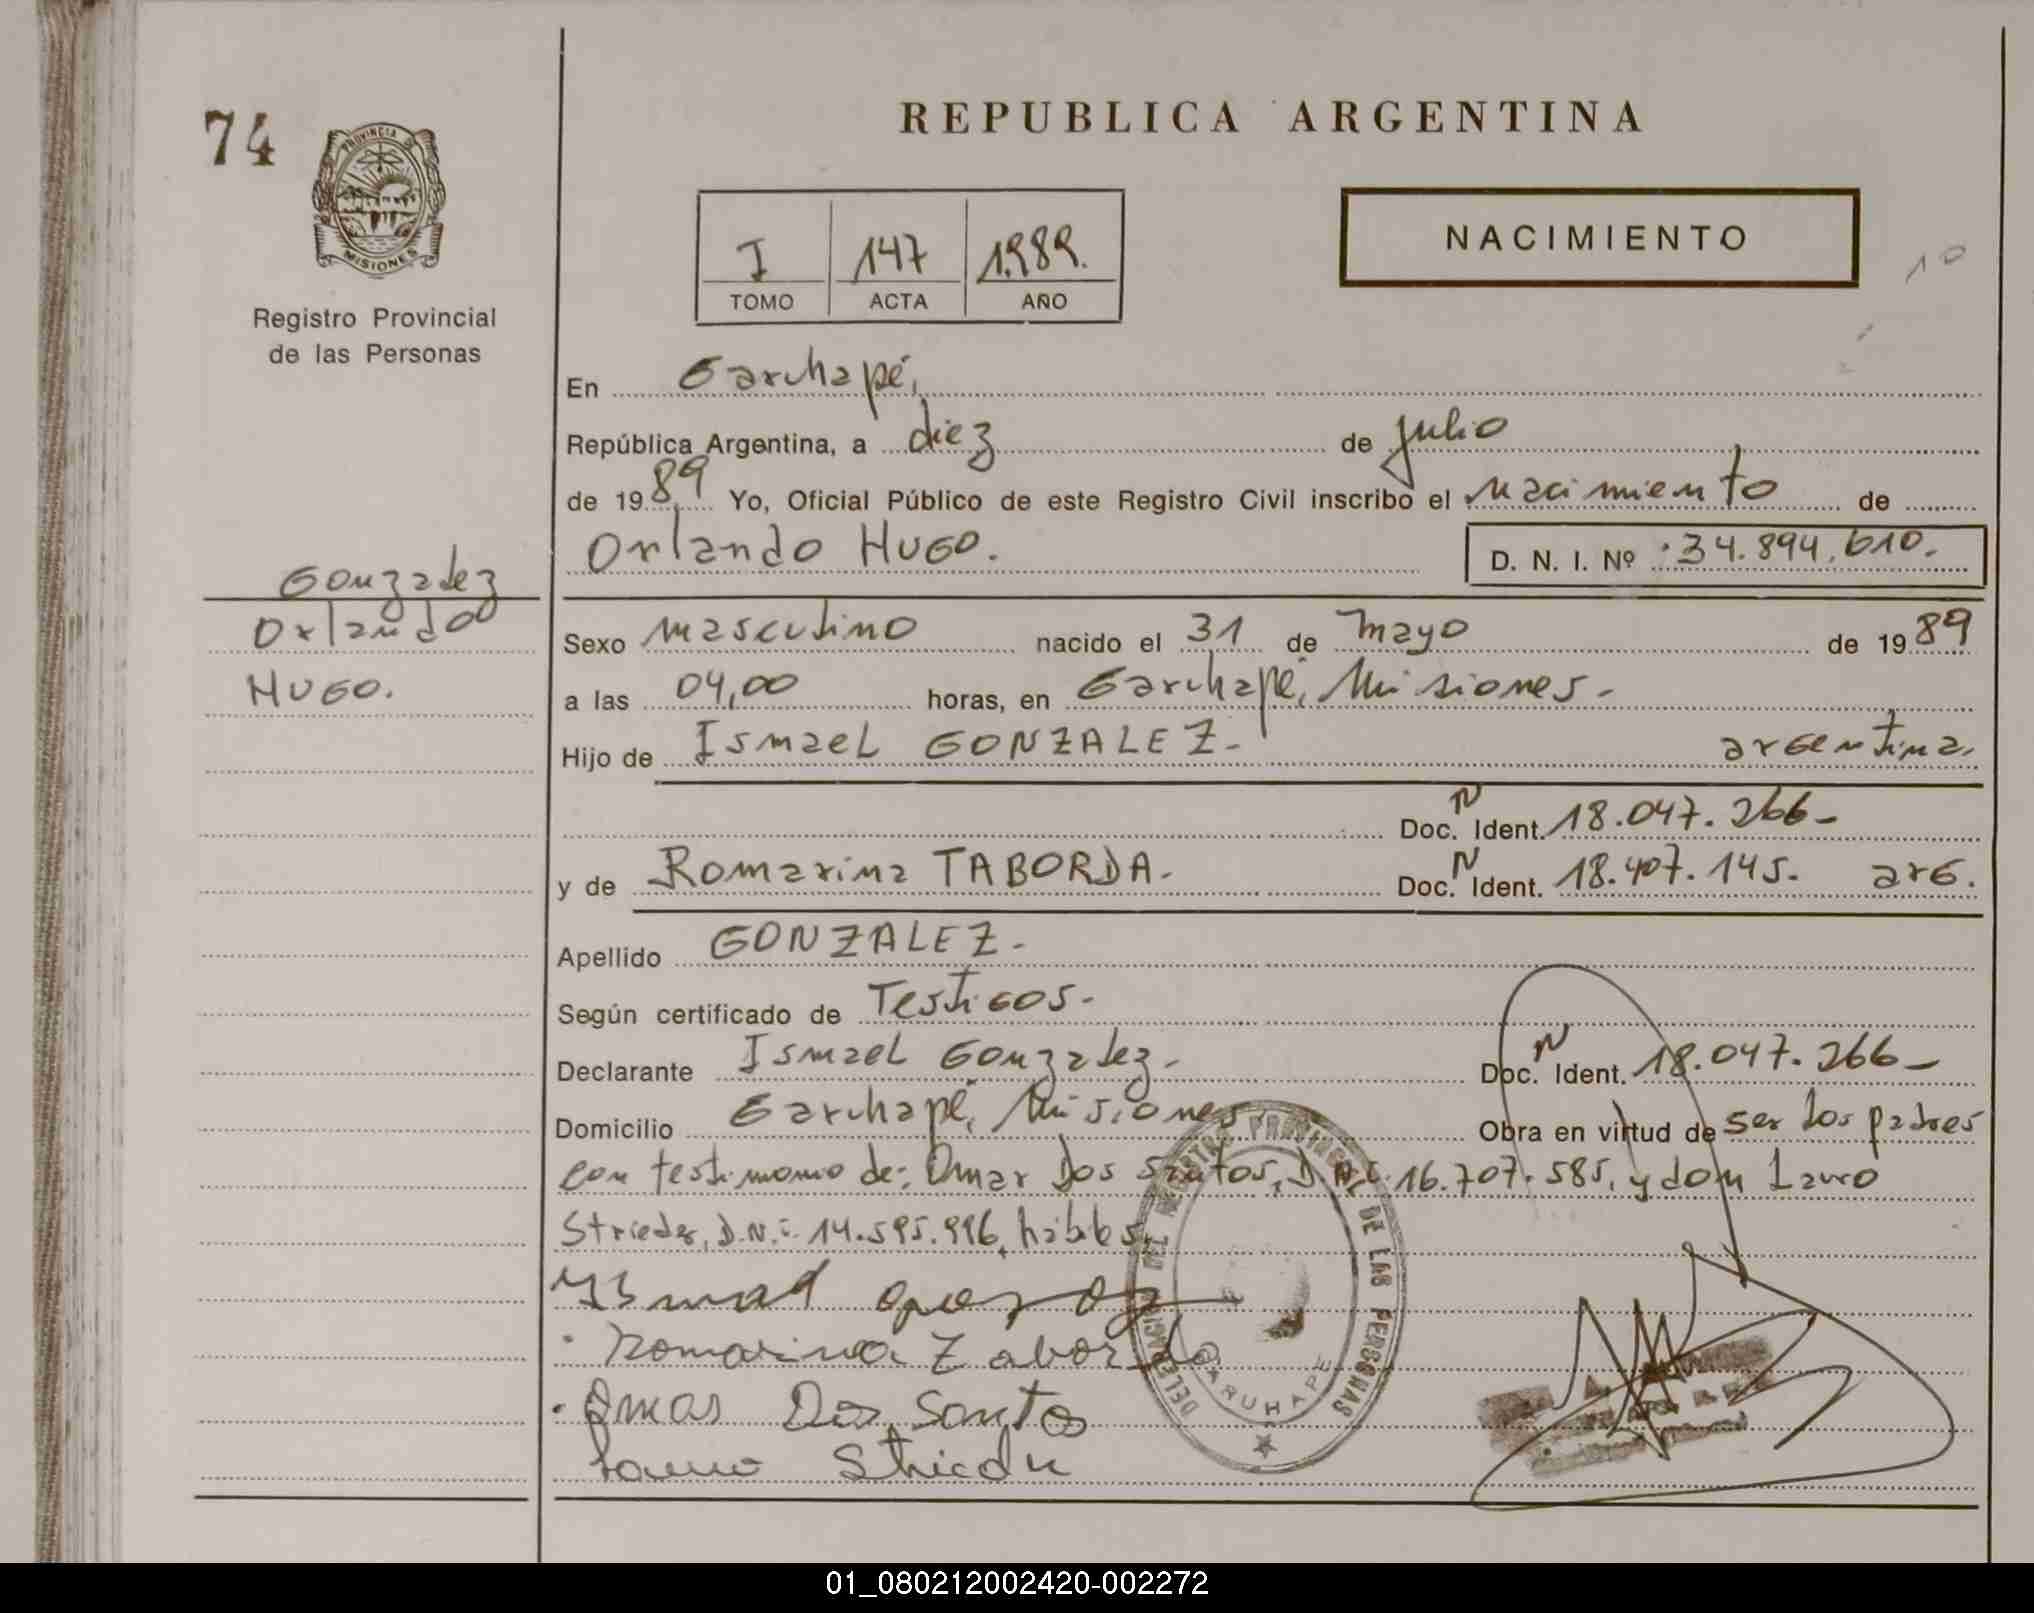 74
PROVINCIA
MISIONES
Registro Provincial
de las Personas
REPUBLICA ARGENTINA
I 147 1989.
TOMO ACTA AÑO
NACIMIENTO
10
En Garuhapé,
República Argentina, a diez de julio
de 1989 Yo, Oficial Público de este Registro Civil inscribo el nacimiento de
Orlando HUGO.
D. N. I. Nº 34.894.610.
Gonzalez
Orlando
HUGO.
Sexo masculino nacido el 31 de mayo de 1989
a las 04,00 horas, en Garuhapé, Misiones.
Hijo de Ismael GONZALEZ. argentina.
Doc. N Ident. 18.047.266
y de Romarina TABORDA. Doc. N Ident. 18.407.145. arg.
Apellido GONZALEZ.
Según certificado de Testigos.
Declarante Ismael Gonzalez. Doc. N Ident. 18.047.266
Domicilio Garuhapé, Misiones Obra en virtud de ser los padres
con testimonio de: Omar Dos Santos, D.N.I. 16.707.585, y don Lauro
Strieder, D.N.I. 14.595.996, hábiles
Romarina Taborda
Omar Dos Santos
Lauro
DELEGACION DEL REGISTRO PROVINCIAL DE LAS PERSONAS
GARUHAPE
01_080212002420-002272